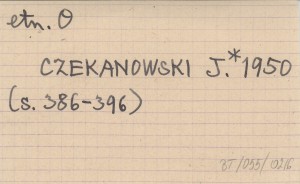 etn. O
CZEKANOWSKI J.* 1950
(s. 386-396)
BT/055/